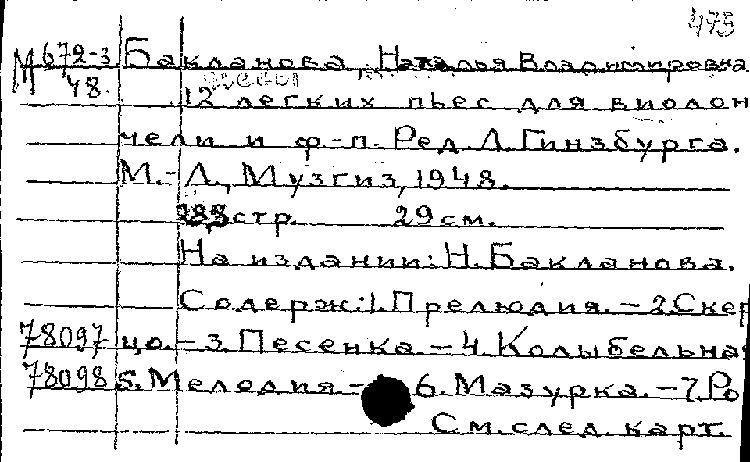 475
М 672-3 Бакланова, Наталья Владимировна
48. пьесы
12 легких пьес для виолон
чели и ф-п. Ред. Л. Гинзбурга.
М.-Л., Музгиз, 1948.
стр. 29 см.
На издании: Н. Бакланова.
Содерж: 1. Прелюдия. - 2. Скер
78097 цо. - 3. Песенка. - 4. Колыбельная
78098 5. Мелодия - 6. Мазурка. - 7. Ро
См. след. карт.